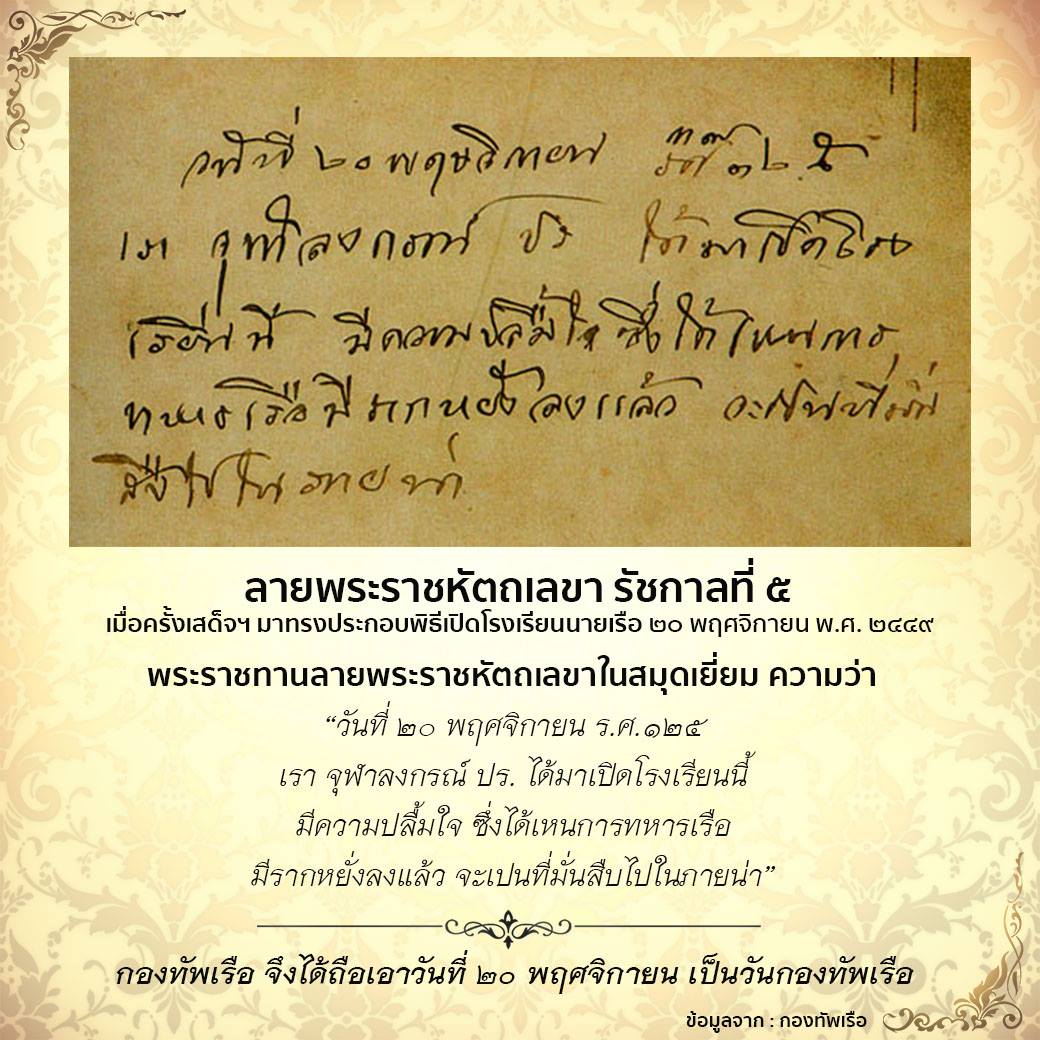 วันที่ ๒๐ พฤษจิกายน ๑๒๕
เรา จุฬาลงกรณ์ ปร ได้มาเปิดโรง
เรียนนี้ มีความปลื้มใจ ซึ่งได้เหนการ
ทหารเรือมีรากหยั่งลงแล้ว จะเปนที่มั่น
สืบไปในภายน่า
ลายพระราชหัตถเลขา รัชกาลที่ ๕
เมื่อครั้งเสด็จฯ มาทรงประกอบพิธีเปิดโรงเรียนนายเรือ ๒๐ พฤศจิกายน พ.ศ. ๒๔๔๙
พระราชทานลายพระราชหัตถเลขาในสมุดเยี่ยม ความว่า
“วันที่ ๒๐ พฤศจิกายน ร.ศ.๑๒๕
เรา จุฬาลงกรณ์ ปร. ได้มาเปิดโรงเรียนนี้
มีความปลื้มใจ ซึ่งได้เหนการทหารเรือ
มีรากหยั่งลงแล้ว จะเปนที่มั่นสืบไปในภายน่า”
กองทัพเรือ จึงได้ถือเอาวันที่ ๒๐ พฤศจิกายน เป็นวันกองทัพเรือ
ข้อมูลจาก : กองทัพเรือ